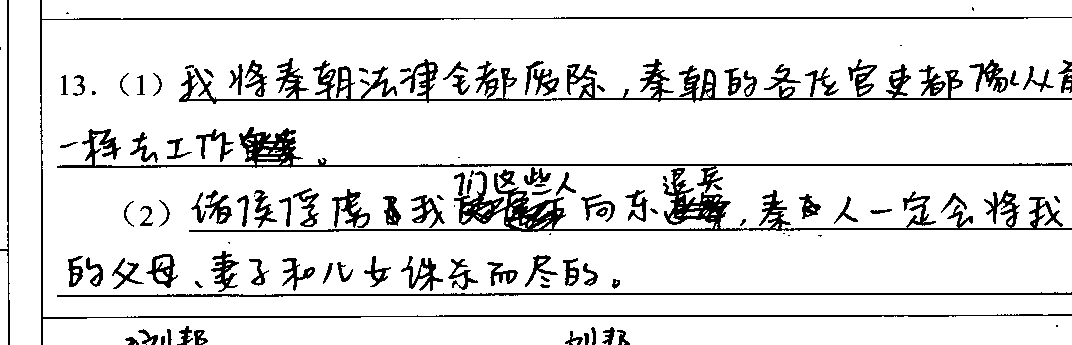 13.（1）我将秦朝法律全都废除，秦朝的各位官吏都像以前
一样去工作。
（2）诸侯俘虏了我们这些人向东退兵，秦人一定会将我
的父母、妻子和儿女诛杀而尽的。
刘邦 刘邦